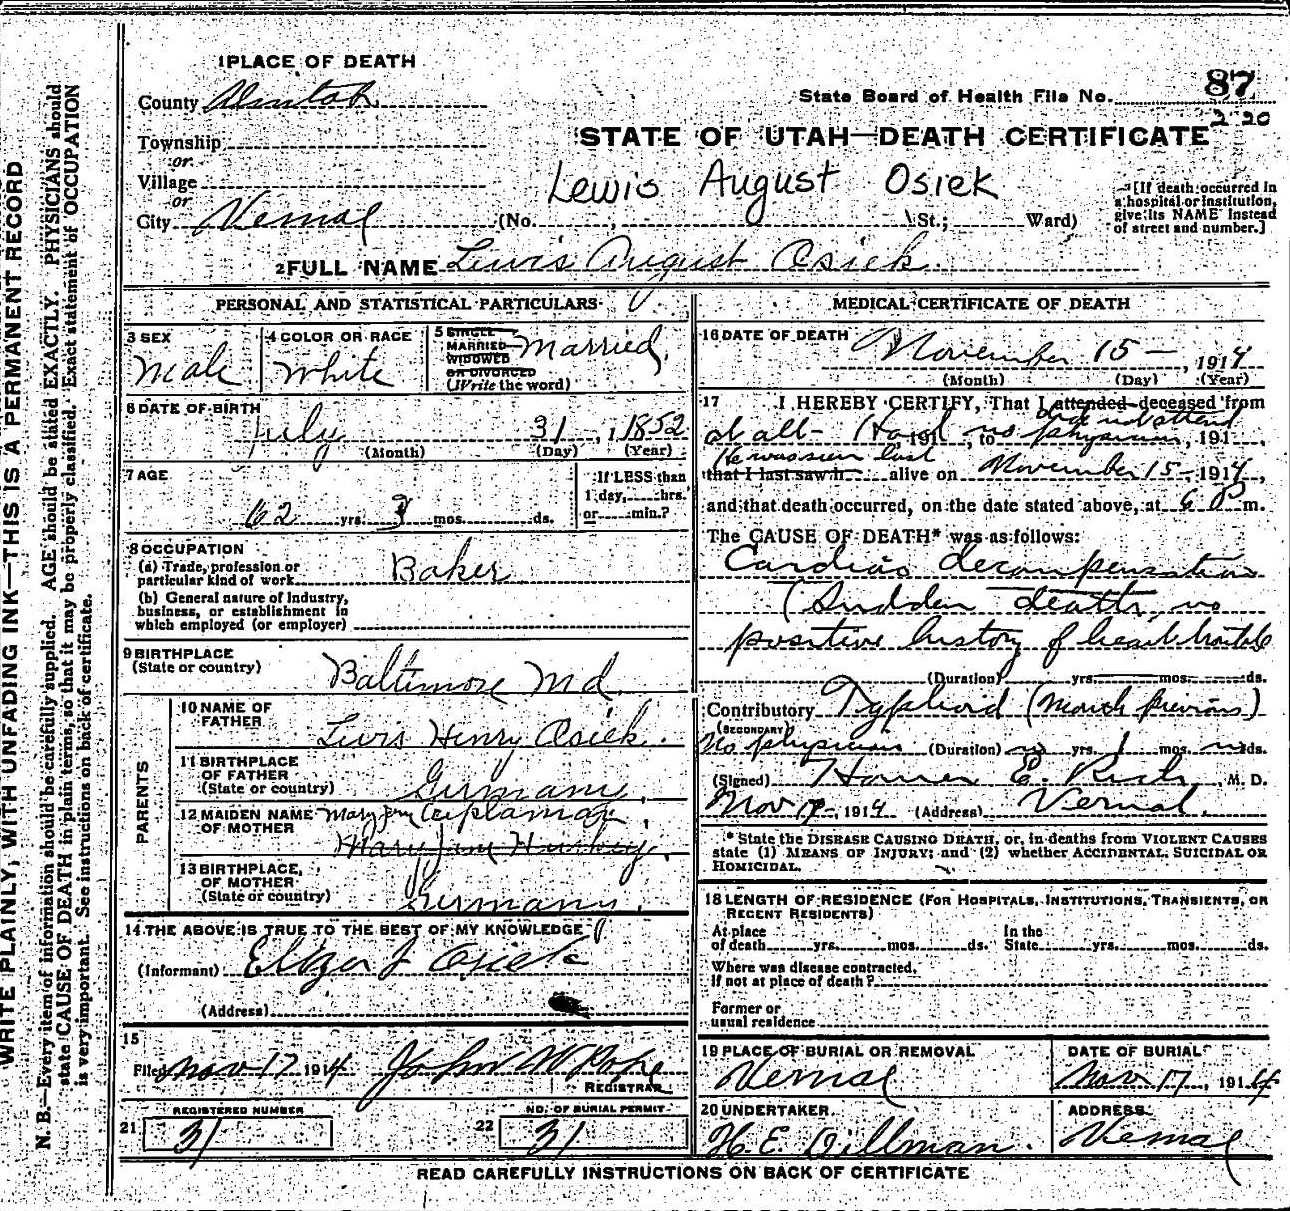 WRITE PLAINLY, WITH UNFADING INK—THIS IS A PERMANENT RECORD
N. B.—Every item of information should be carefully supplied. AGE should be stated EXACTLY. PHYSICIANS should
state CAUSE OF DEATH in plain terms, so that it may be properly classified. Exact statement of OCCUPATION
is very important. See instructions on back of certificate.
1 PLACE OF DEATH
County Uintah
State Board of Health File No. 87
2 20
Township
or
STATE OF UTAH—DEATH CERTIFICATE
Village
or
Lewis August Osiek
City Vernal (No. , St.; Ward)
[If death occurred in
a hospital or institution,
give its NAME instead
of street and number.]
2 FULL NAME Lewis August Osiek
PERSONAL AND STATISTICAL PARTICULARS
3 SEX
Male
4 COLOR OR RACE
White
5 SINGLE
MARRIED
WIDOWED
OR DIVORCED
(Write the word)
Married
6 DATE OF BIRTH
July 31, 1852
(Month) (Day) (Year)
7 AGE
62 yrs. 3 mos. ds.
If LESS than
1 day, hrs.
or min.?
8 OCCUPATION
(a) Trade, profession or
particular kind of work Baker
(b) General nature of industry,
business, or establishment in
which employed (or employer)
9 BIRTHPLACE
(State or country)
Baltimore Md.
PARENTS
10 NAME OF
FATHER
Lewis Henry Osiek.
11 BIRTHPLACE
OF FATHER
(State or country)
Germany,
12 MAIDEN NAME
OF MOTHER
Mary Jany
Mary Jany
13 BIRTHPLACE,
OF MOTHER
(State or country)
Germany.
14 THE ABOVE IS TRUE TO THE BEST OF MY KNOWLEDGE
(Informant) J Osiek
(Address)
15
Filed Nov 17 1914 John W Pope
REGISTRAR
REGISTERED NUMBER
21 31
NO. OF BURIAL PERMIT
22 31
MEDICAL CERTIFICATE OF DEATH
16 DATE OF DEATH
November 15 —, 1914
(Month) (Day) (Year)
17 I HEREBY CERTIFY, That I attended deceased from
did not attend
at all - Had 191 no, to physician, 191 ,
He was seen last
that I last saw h alive on November 15 - 1914,
and that death occurred, on the date stated above, at 6 P m.
The CAUSE OF DEATH* was as follows:
Cardiac decompensation
(Sudden death, no
positive history of heart trouble
(Duration) yrs. mos. ds.
Contributory Typhoid (Month previous)
(SECONDARY)
No physician (Duration) no yrs. 1 mos. ds.
(Signed) Homer E. Rich, M. D.
Nov 17-, 1914 (Address) Vernal.
* State the DISEASE CAUSING DEATH, or, in deaths from VIOLENT CAUSES
state (1) MEANS OF INJURY; and (2) whether ACCIDENTAL, SUICIDAL OR
HOMICIDAL.
18 LENGTH OF RESIDENCE (FOR HOSPITALS, INSTITUTIONS, TRANSIENTS, OR
RECENT RESIDENTS)
At place
of death yrs. mos. ds.
In the
State yrs. mos. ds.
Where was disease contracted,
If not at place of death?
Former or
usual residence
19 PLACE OF BURIAL OR REMOVAL
Vernal
DATE OF BURIAL
Nov 17, 1914
20 UNDERTAKER
H. E. Dillman.
ADDRESS
Vernal
READ CAREFULLY INSTRUCTIONS ON BACK OF CERTIFICATE